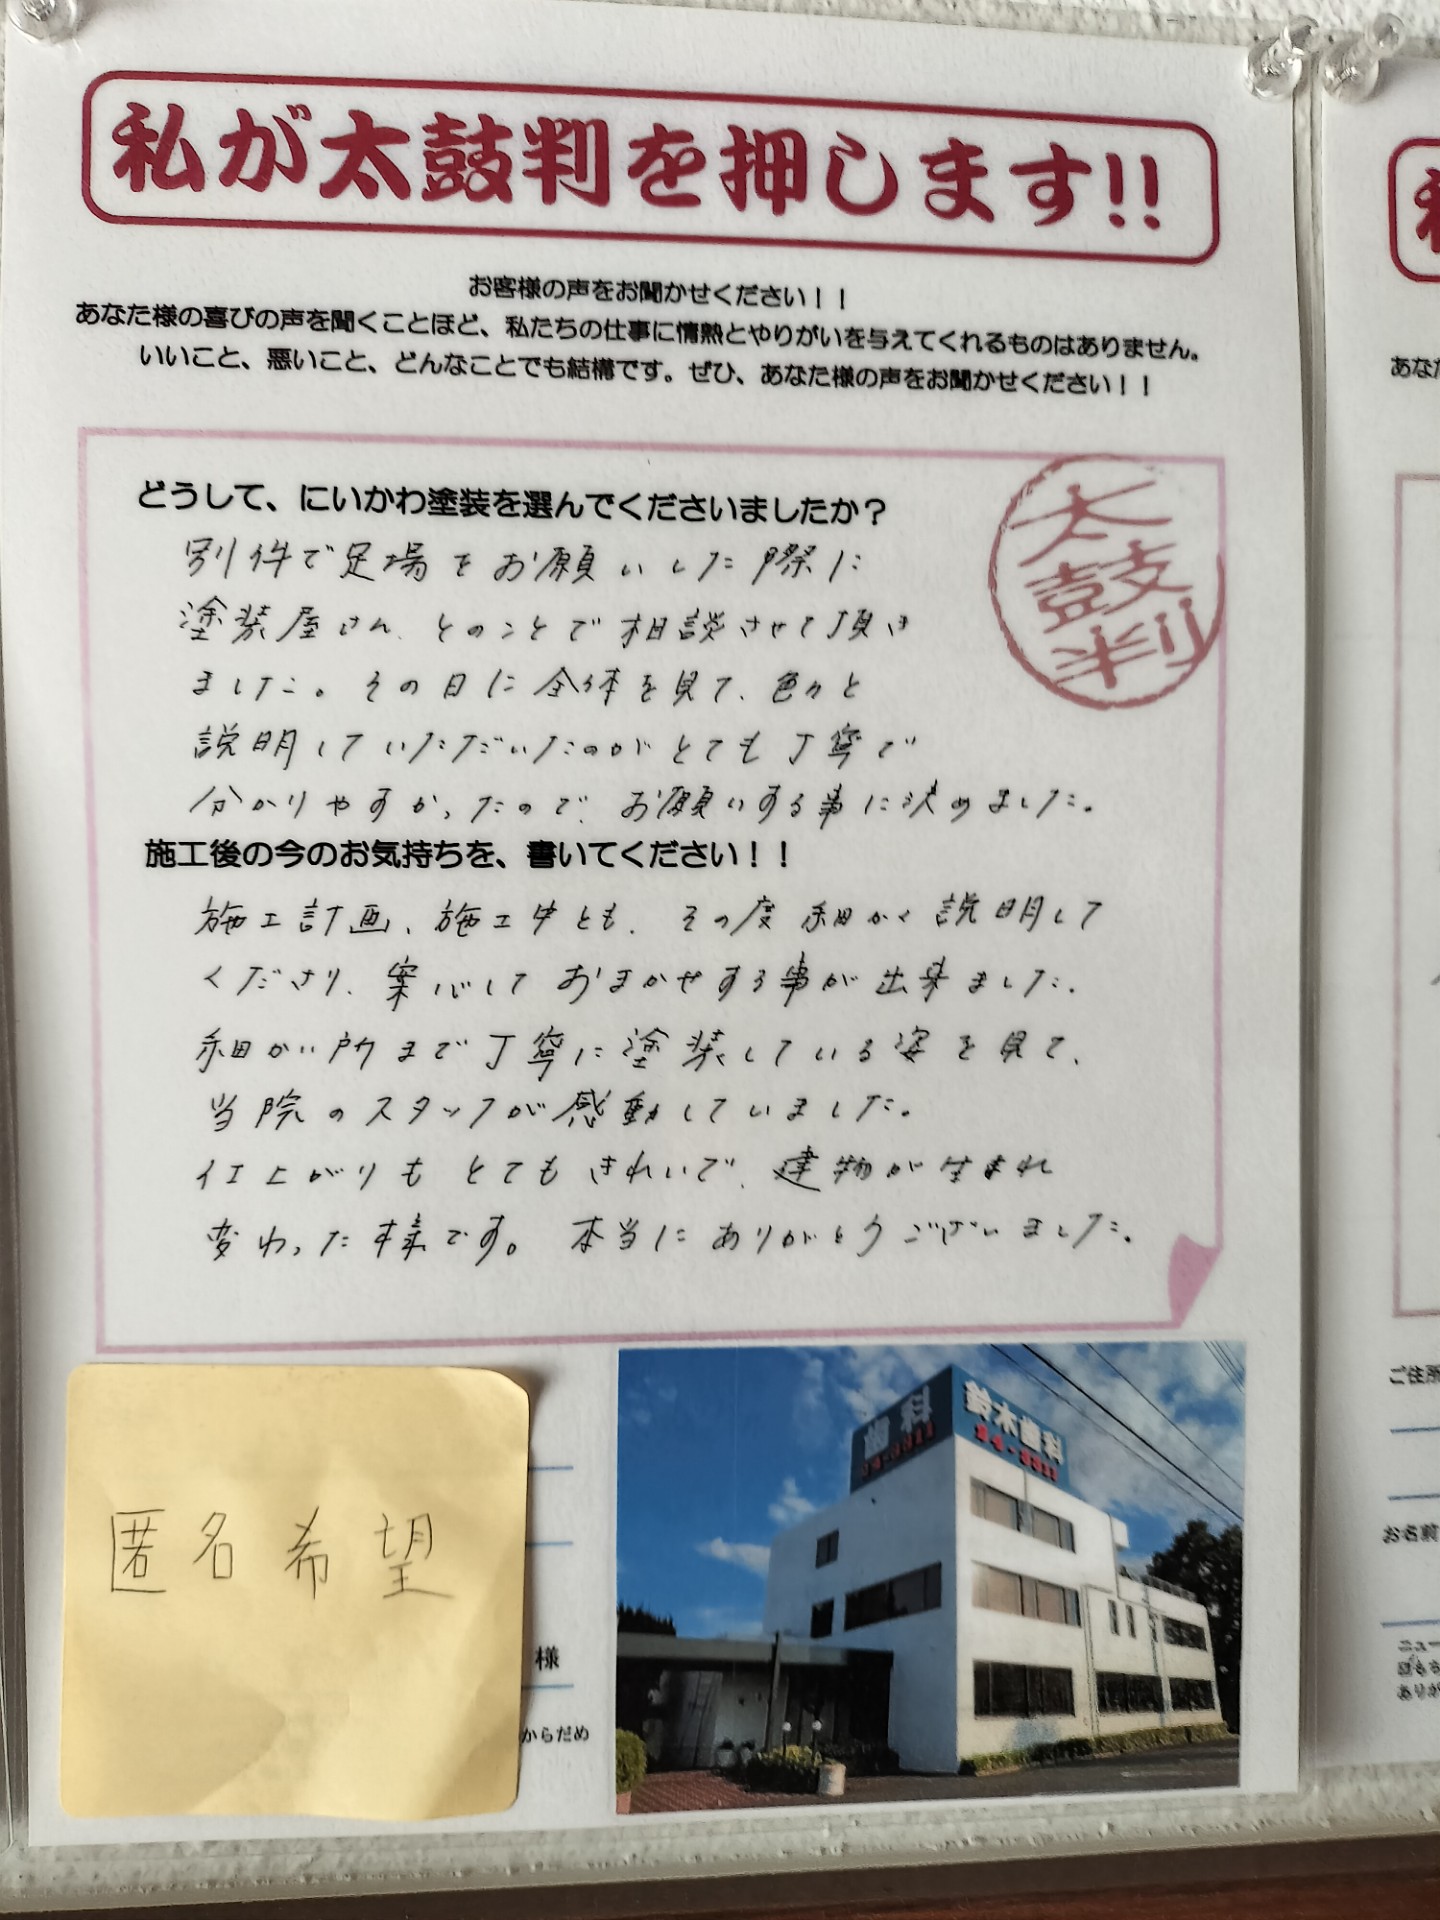 私が太鼓判を押します!!
お客様の声をお聞かせください！！
あなた様の喜びの声を聞くことほど、私たちの仕事に情熱とやりがいを与えてくれるものはありません。
いいこと、悪いこと、どんなことでも結構です。ぜひ、あなた様の声をお聞かせください！！
太鼓判
どうして、にいかわ塗装を選んでくださいましたか？
別件で足場をお願いした際に
塗装屋さん、とのことで相談させて頂き
ました。その日に全体を見て、色々と
説明していただいたのがとても丁寧で
分かりやすかったので、お願いする事に決めました。
施工後の今のお気持ちを、書いてください！！
施工計画、施工中とも、その度細かく説明して
くださり、案心しておまかせする事が出来ました。
細かい所まで丁寧に塗装している姿を見て、
当院のスタッフが感動していました。
仕上がりもとてもきれいで、建物が生まれ
変わった様です。本当にありがとうございました。
匿名希望
様
からだめ
歯科
鈴木歯科
あなた
ご住所
お名前
ニュー
ありが